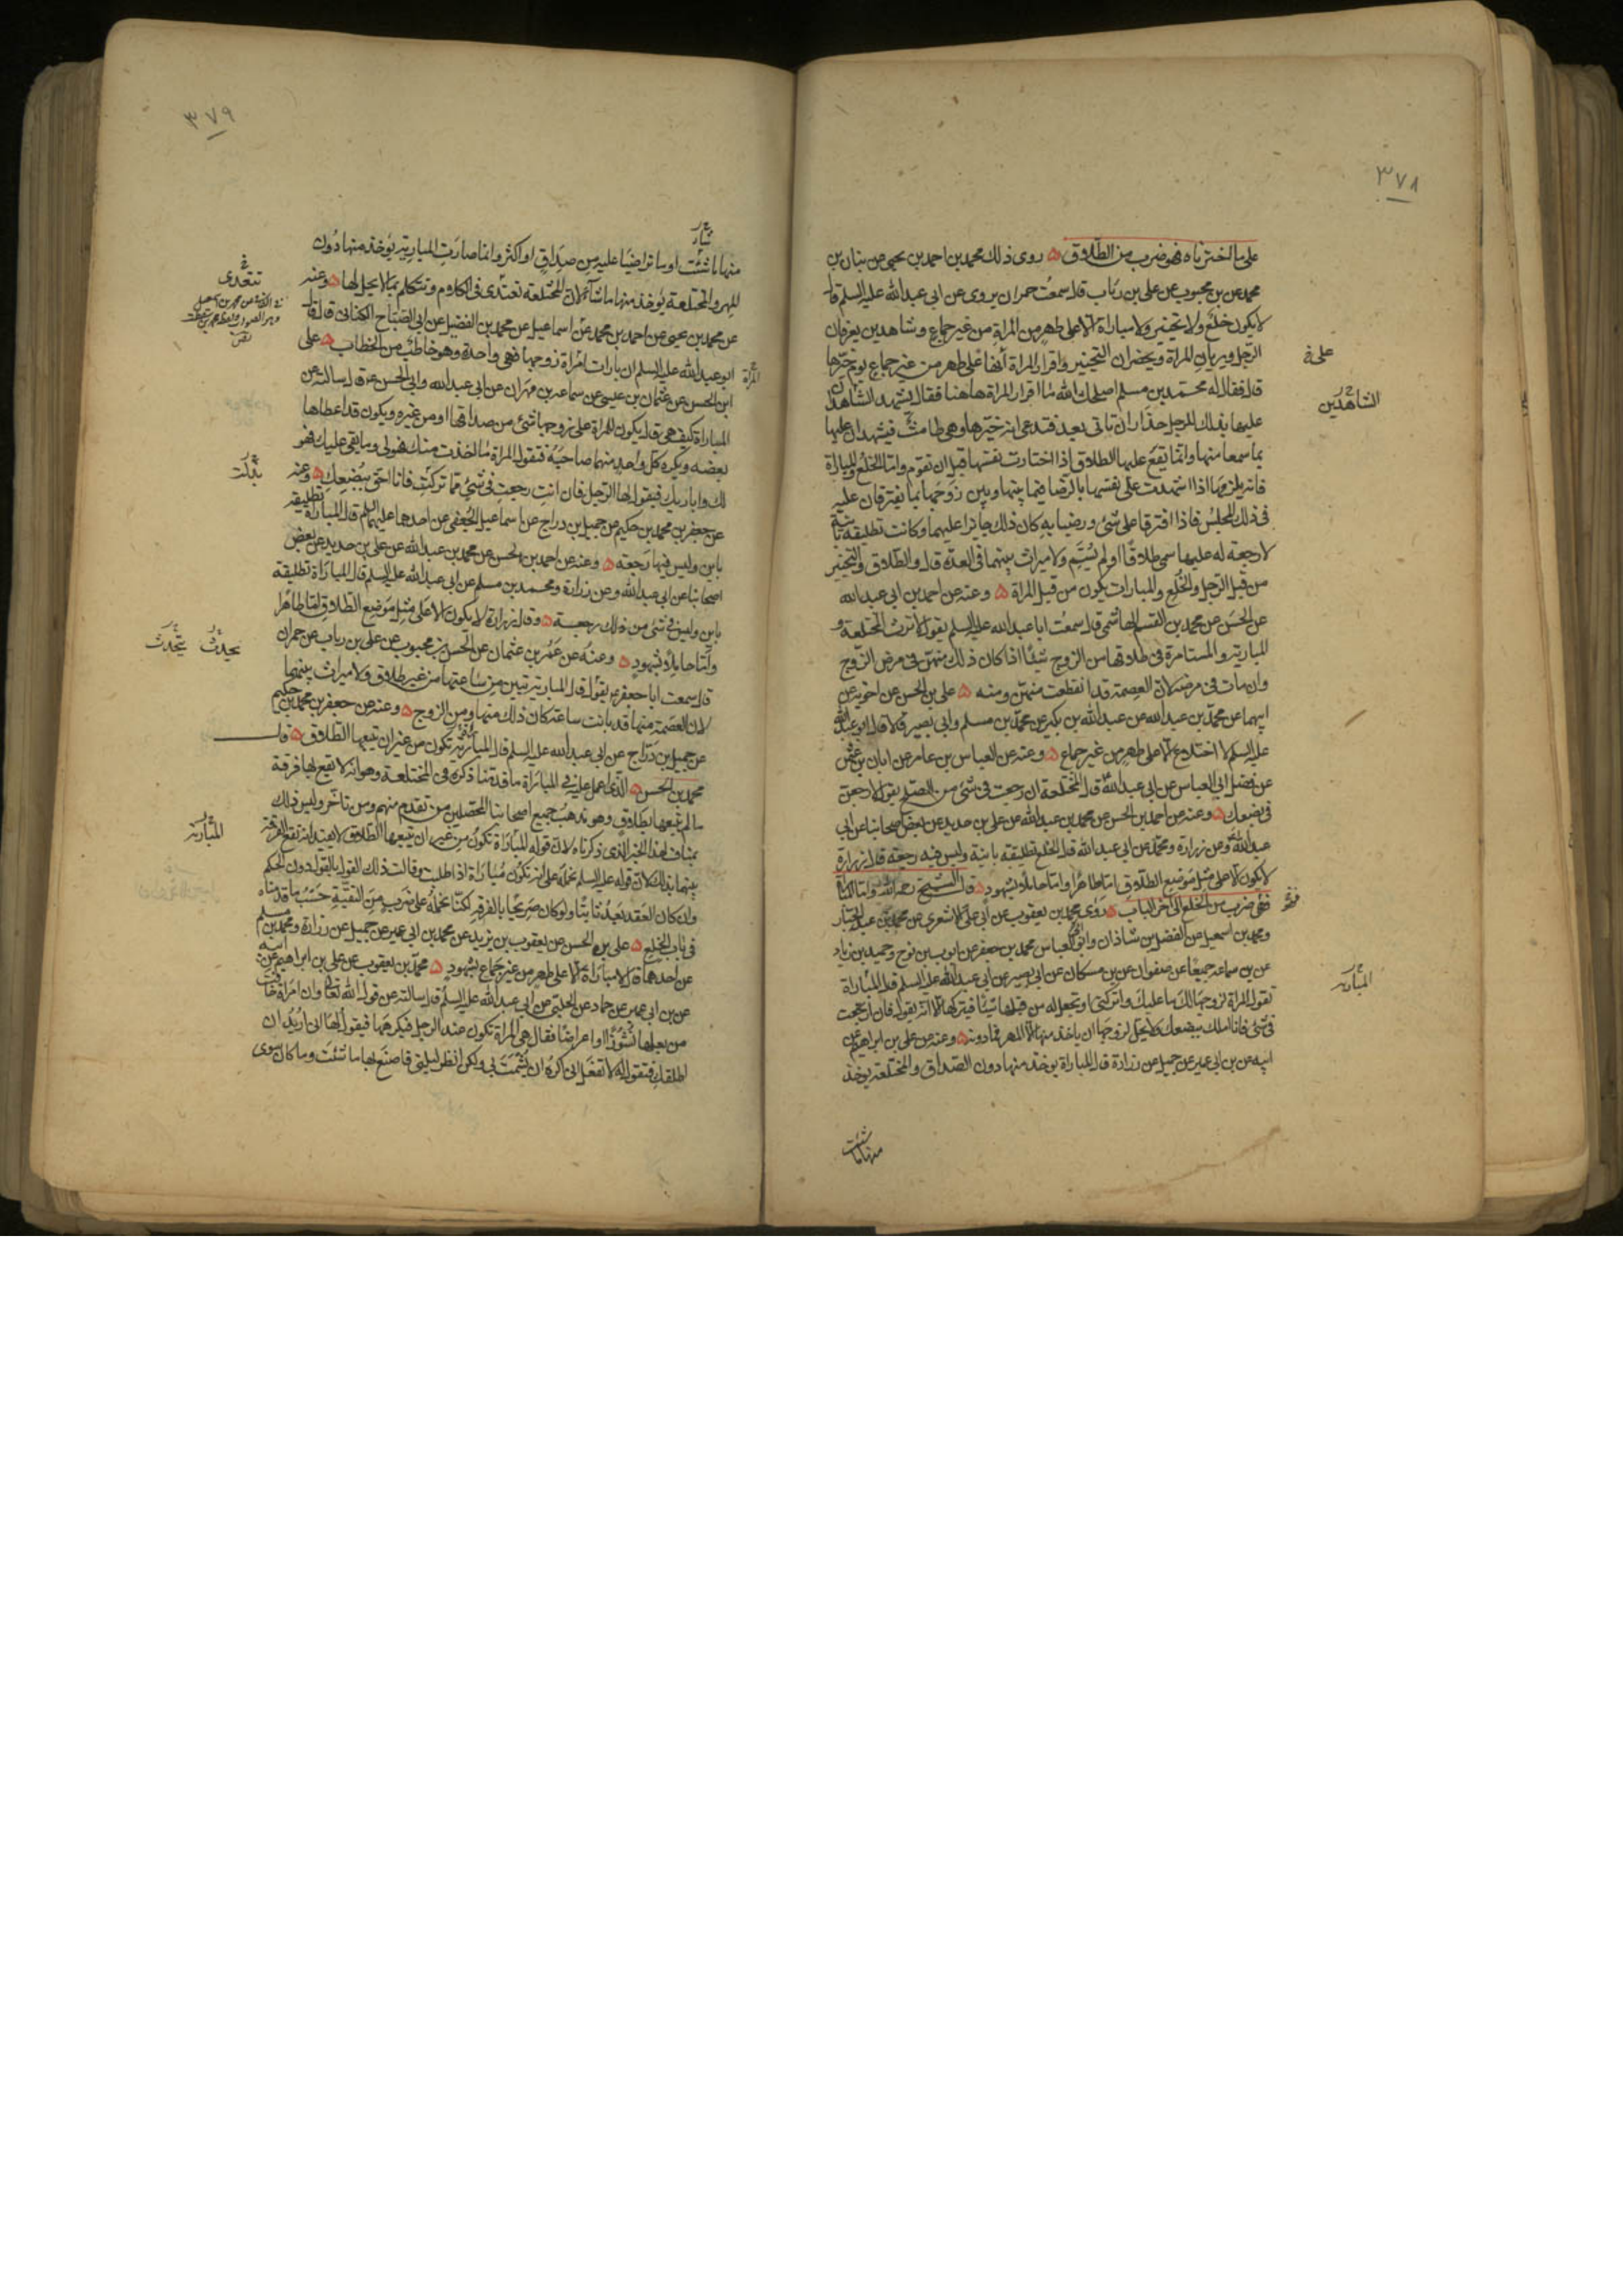 ٣٧٨
على ما اخترناه فهو ضرب من الطلاق ۵ روى ذلك محمد بن احمد بن يحيى عن بنان بن
محمد عن بن محبوب عن على بن رياب قال سمعت حمران يروى عن ابى عبد الله عليه السلم قال
لا يكون خلع ولا تخيير ولا مباراة الا على طهر من المراة من غير جماع وشاهدين يعرفان
الرجل ويريان المراة ويحضران التخيير واقرار المراة انها على طهر من غير جماع يوم خيرها
على
قال فقال له محمد بن مسلم اصلحك الله ما اقرار المراة هاهنا فقال يشهد الشاهدان
الشاهدين
عليها بذلك للرجل حذار ان تاتى بعد فتدعى انه خيرها وهى طامث فيشهدان عليها
بما سمعا منها وانما يقع عليها الطلاق اذا اختارت نفسها قبل ان تقوم واما الخلع والمباراة
فانه يلزمها اذا اشهدت على نفسها بالرضا فيما بينها وبين زوجها بما يفترقان عليه
فى ذلك المجلس فاذا افترقا على شئ ورضيا به كان ذلك جايزا عليهما وكانت تطليقة باينة
لا رجعة له عليها سمى طلاقا او لم يسم ولا ميراث بينهما فى العدة قال والطلاق والتخيير
من قبل الرجل والخلع والمبارات يكون من قبل المراة ۵ وعنه عن احمد بن ابى عبد الله
عن الحسن عن محمد بن القسم الهاشمى قال سمعت ابا عبد الله عليه السلم يقول لا ترث المختلعة و
المبارية والمستامرة فى طلاقها من الزوج شئا اذا كان ذلك منهن فى مرض الزوج
وان مات فى مرضه لان العصمة قد انقطعت منهن ومنه ۵ على بن الحسن عن اخويه عن
ابيهما عن محمد بن عبد الله عن عبد الله بن بكير عن محمد بن مسلم وابى بصير قالا قال ابو عبد الله
عليه السلم لا اختلاع الا على طهر من غير جماع ۵ وعنه عن العباس بن عامر عن ابان بن عثمن
عن فضل ابى العباس عن ابى عبد الله قال المختلعة ان رجعت فى شئ من الصلح يقول لارجعن
فى بضعك ۵ وعنه عن احمد بن الحسن عن محمد بن عبد الله عن على بن حديد عن بعض اصحابنا عن ابى
عبد الله وعن زرارة ومحمد عن ابى عبد الله قال الخلع تطليقة باينة وليس فيه رجعة قال زرارة
لا يكون الا على مثل موضع الطلاق اما طاهرا واما حاملا بشهود ۵ قال الشيخ رحمه الله واما المباراة
فهى ضرب من الخلع الى اخر الباب ۵ روى محمد بن يعقوب عن ابى على الاشعرى عن محمد بن عبد الجبار
فهو
ومحمد بن اسمعيل عن الفضل بن شاذان وابى العباس محمد بن جعفر عن ايوب بن نوح وحميد بن زياد
عن بن سماعة جميعا عن صفوان عن بن مسكان عن ابى بصير عن ابى عبد الله عليه السلم قال المباراة
المبارية
تقول المراة لزوجها لك ما عليك واتركنى او تجعل له من قبلها شيئا فيتركها الا انه يقول فان ارتجعت
فى شئ فانا املك ببضعك ولا يحل لزوجها ان ياخذ منها الا المهر فما دونه ۵ وعنه عن على بن ابراهيم عن
ابيه عن بن ابى عمير عن جميل عن زرارة قال المباراة يوخذ منها دون الصداق والمختلعة يوخذ
منها ما شئت
٣٧٩
منها ما شئت او ما تراضيا عليه من صداق او اكثر وانما صارت المبارية يوخذ منها دون
المهر والمختلعة يوخذ منها ما شاء لان المختلعة تعتدى فى الكلام وتتكلم بما لا يحل لها ۵ وعنه
تتعدى
عن محمد بن يحيى عن احمد بن محمد عن اسماعيل عن محمد بن الفضيل عن ابى الصباح الكنانى قال قال
ابو عبد الله عليه السلم ان بارات امراة زوجها فهى واحدة وهو خاطب من الخطاب ۵ على
المراة
ابن الحسن عن عثمان بن عيسى عن سماعة بن مهران عن ابى عبد الله وابى الحسن ع قال سالته عن
المباراة كيف هى قال يكون للمراة على زوجها شئ من صداقها او من غيره ويكون قد اعطاها
بعضه ويكره كل واحد منهما صاحبه فتقول المراة ما اخذت منك فهو لى وما بقى عليك فهو
لك وابارئك فيقول لها الرجل فان انت رجعت فى شئ مما تركت فانا احق ببضعك ۵ وعنه
عن جعفر بن محمد بن حكيم عن جميل بن دراج عن اسماعيل الجعفى عن احدهما عليهما السلم قال المباراة تطليقة
باين وليس فيها رجعة ۵ وعنه عن احمد بن الحسن عن محمد بن عبد الله عن على بن حديد عن بعض
اصحابنا عن ابى عبد الله وعن زرارة ومحمد بن مسلم عن ابى عبد الله عليه السلم قال المباراة تطليقة
باين وليس فى شئ من ذلك رجعة ۵ وقال زرارة لا يكون الا على مثل موضع الطلاق اما طاهرا
واما حاملا بشهود ۵ وعنه عن عمر بن عثمان عن الحسن بن محبوب عن على بن رياب عن حمران
قال سمعت ابا جعفر ع يقول قال المبارية تبين من ساعتها من غير طلاق ولا ميراث بينهما
لان العصمة منها قد بانت ساعة كان ذلك منها ومن الزوج ۵ وعنه عن جعفر بن محمد بن حكيم
عن جميل بن دراج عن ابى عبد الله عليه السلم قال المباراة تكون من غير ان يتبعها الطلاق ۵ قال
محمد بن الحسن ۵ الذى اعمل عليه فى المباراة ما قدمنا ذكره فى المختلعة وهو انه لا يقع بها فرقة
ما لم يتبعها بطلاق وهو مذهب جميع اصحابنا المحصلين من تقدم منهم ومن تاخر وليس ذلك
بمناف لهذا الخبر الذى ذكرناه لان قوله المباراة تكون من غير ان يتبعها الطلاق لا يفيد انه تقع الفرقة
المبارية
بينهما بذلك لان قوله عليه السلم نحمله على انه تكون مباراة اذا طلبت وقالت ذلك القول بالقول دون الحكم
وان كان العقد بعد ثابتا ولو كان صريحا بالفرقة لكنا نحمله على ضرب من التقية حسب ما قدمناه
فى باب الخلع ۵ على بن الحسن عن يعقوب بن يزيد عن محمد بن ابى عمير عن جميل عن زرارة ومحمد بن مسلم
عن احدهما قال لا مباراة الا على طهر من غير جماع بشهود ۵ محمد بن يعقوب عن على بن ابراهيم عن ابيه
عن بن ابى عمير عن حماد عن الحلبى عن ابى عبد الله عليه السلم قال سالته عن قول الله تعالى وان امراة خافت
من بعلها نشوزا او اعراضا فقال هى المراة تكون عند الرجل فيكرهها فيقول لها انى اريد ان
اطلقك فتقول له لا تفعل انى اكره ان يشمت بى ولكن انظر ليلتى فاصنع بها ما شئت وما كان سوى